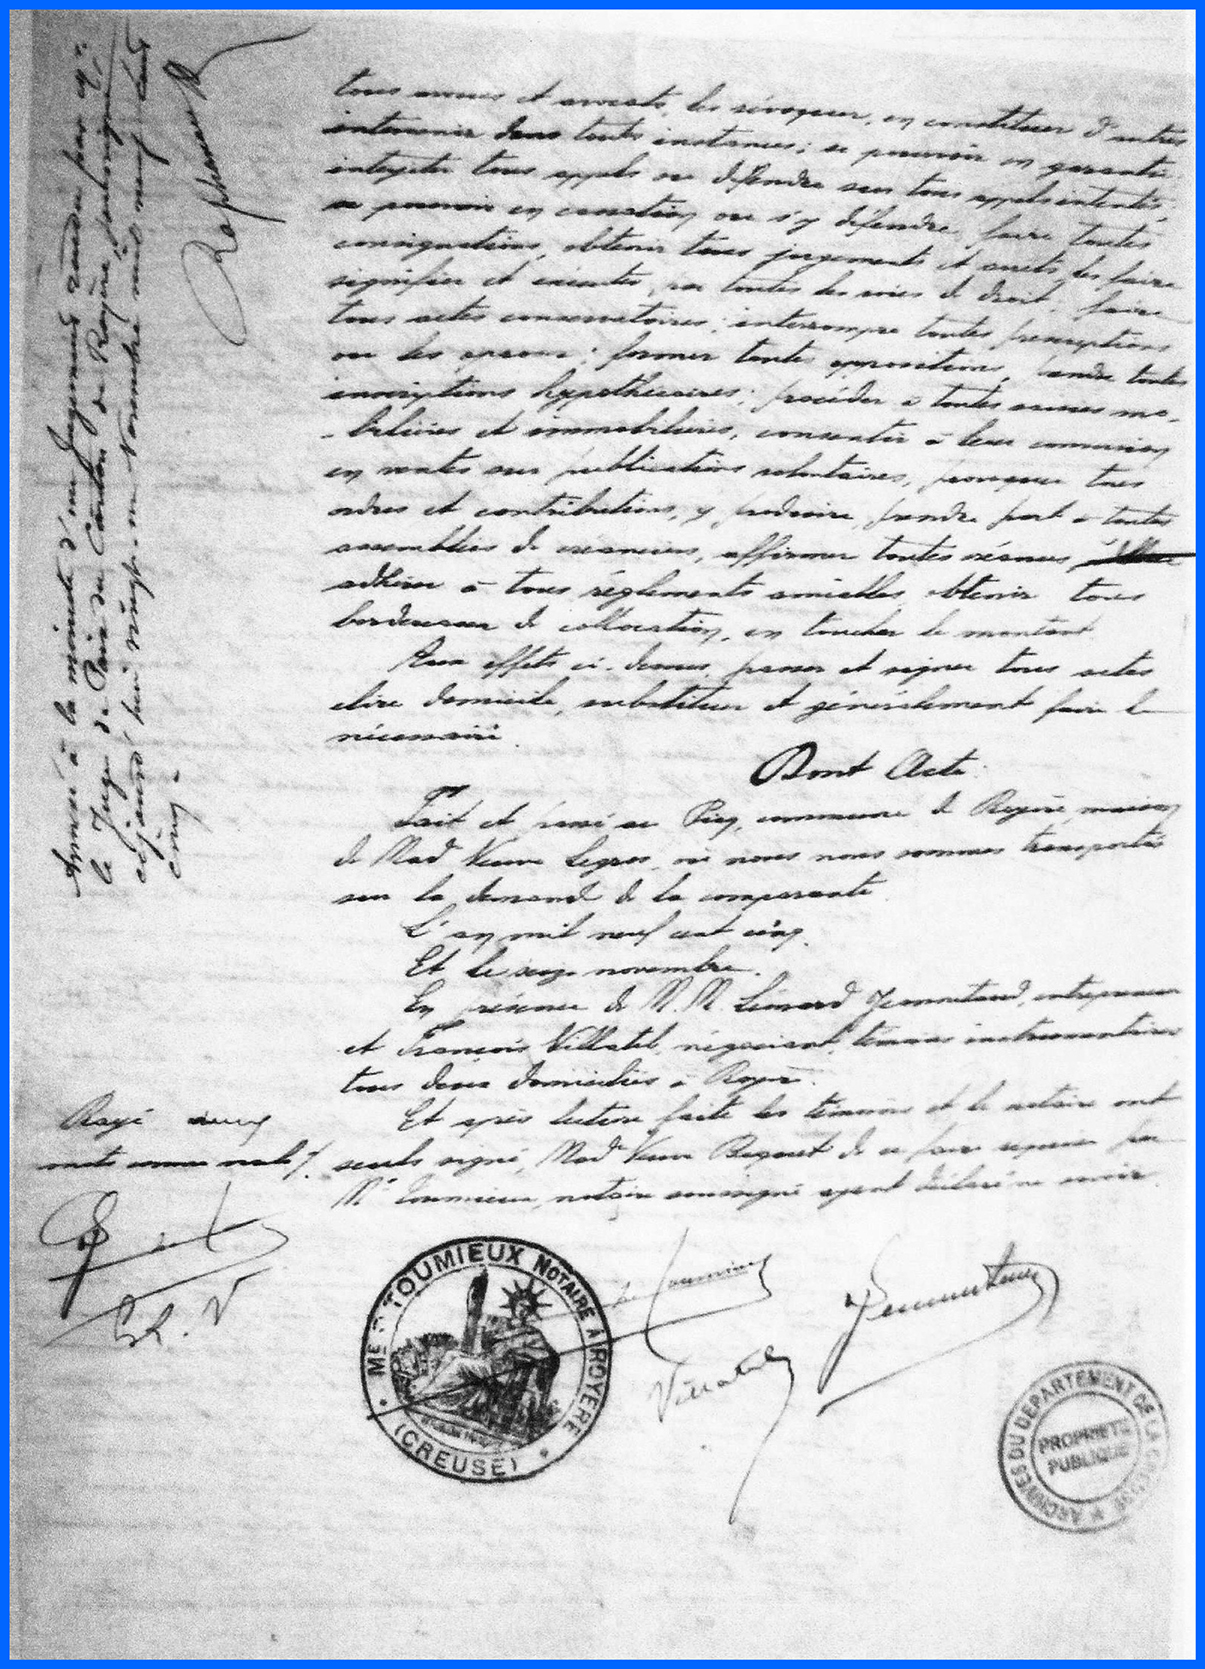 tous avoués et avocats, les révoquer, en constituer d'autres
intervenir dans toutes instances; se pourvoir en garantie
interjeter tous appels ou défendre sur tous appels intentés,
se pourvoir en cassation ou s'y défendre, faire toutes
consignations, obtenir tous jugements et arrêts, les faire
signifier et exécuter, par toutes les voies de droit; faire
tous actes conservatoires; interrompre toutes prescriptions
ou les opposer; former toute oppositions, prendre toutes
inscriptions hypothécaires; procéder à toutes saisies mo-
-bilières et immobilières, consentir à leur conversion
en ventes sur publications volontaires, provoquer tous
ordres et contributions, y produire, prendre part à toutes
assemblées de créanciers, affirmer toutes créances,
adhérer à tous règlements amiables, obtenir tous
bordereaux de collocation, en toucher le montant.
Aux effets ci-dessus, passer et signer tous actes
élire domicile, substituer et généralement faire le
nécessaire.
Dont Acte.
Fait et passé au Puy, commune de Royère, maison
de Mad Veuve Legros, où nous nous sommes transportés
sur la demande de la comparante.
L'an mil neuf cent cinq.
Et le seize novembre.
En présence de M.M. Léonard Jeanmitaud, entrepreneur
et François Villatel, négociant, témoins instrumentaires
tous deux domiciliés à Royère.
Et après lecture faite les témoins et le notaire ont
seuls signé, Mad Veuve de ce faire requise par
Me Toumieux, notaire soussigné ayant déclaré ne savoir.
Annexé à la minute d'un Jugement rendu par M.
le Juge de Paix du Canton de Royère, soussigné
aujourd'hui vingt-un Novembre mil neuf cent
cinq.
Rayé
mots comme nuls
L. V
Toumieux
Villatel
ME TOUMIEUX NOTAIRE A ROYERE
(CREUSE)
ARCHIVES DU DEPARTEMENT DE LA CREUSE
PROPRIETE
PUBLIQUE